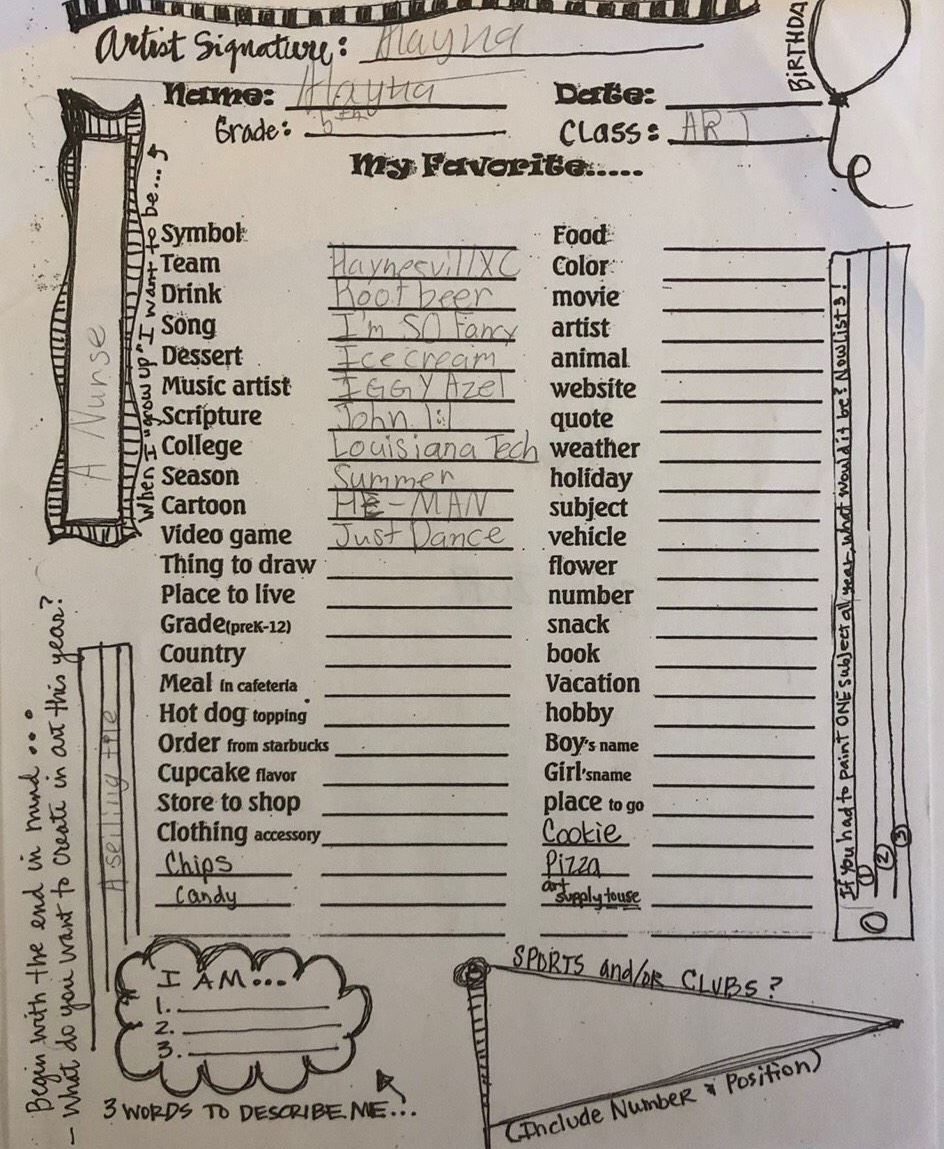 Artist Signature: Alayna
Name: Alayna
Date:
BIRTHDA
Grade: 6th
Class: ART
My Favorite.....
Symbol
Team HaynesvillXC
Drink Root beer
Song I'm SO Fancy
Dessert Ice cream
Music artist IGGY Azel
Scripture John 1:1
College Louisiana Tech
Season Summer
Cartoon HE-MAN
Video game Just Dance
Thing to draw
Place to live
Grade(preK-12)
Country
Meal in cafeteria
Hot dog topping
Order from starbucks
Cupcake flavor
Store to shop
Clothing accessory
Chips
Candy
Food
Color
movie
artist
animal
website
quote
weather
holiday
subject
vehicle
flower
number
snack
book
Vacation
hobby
Boy's name
Girl'sname
place to go
Cookie
Pizza
art
supply to use
When I "grow up" I want to be...
A Nurse
Begin with the end in mind...
- What do you want to create in art this year?
A seiling tile
If you had to paint ONE subject all year, what would it be? Now list 3!
1
2
3
I AM...
1.
2.
3.
3 WORDS TO DESCRIBE ME...
SPORTS and/or CLUBS?
(Include Number & Position)